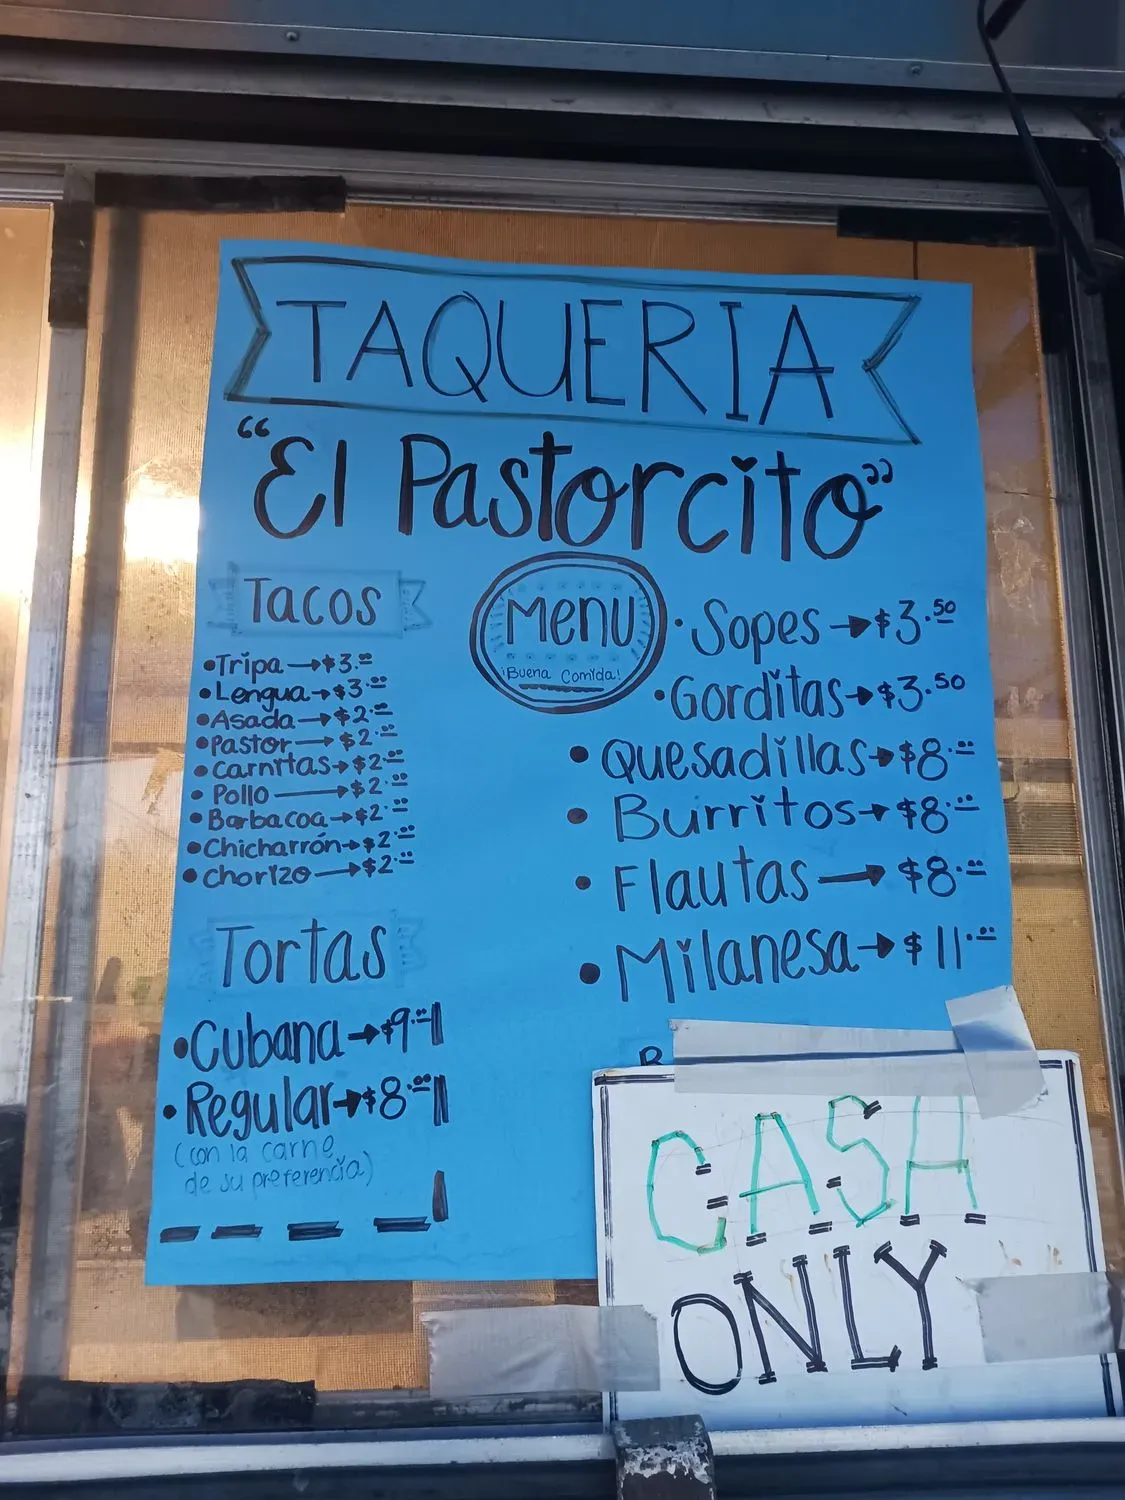 TAQUERIA
"El Pastorcito"
Tacos
•Tripa→$3.00
•Lengua→$3.00
•Asada→$2.00
•Pastor→$2.00
•Carnitas→$2.00
•Pollo→$2.00
•Barbacoa→$2.00
•Chicharrón→$2.00
•Chorizo→$2.00
Tortas
•Cubana→$9.00
•Regular→$8.00
(con la carne
de su preferencia)
Menu
¡Buena Comida!
•Sopes→$3.50
•Gorditas→$3.50
•Quesadillas→$8.00
•Burritos→$8.00
•Flautas→$8.00
•Milanesa→$11.00
CASH
ONLY